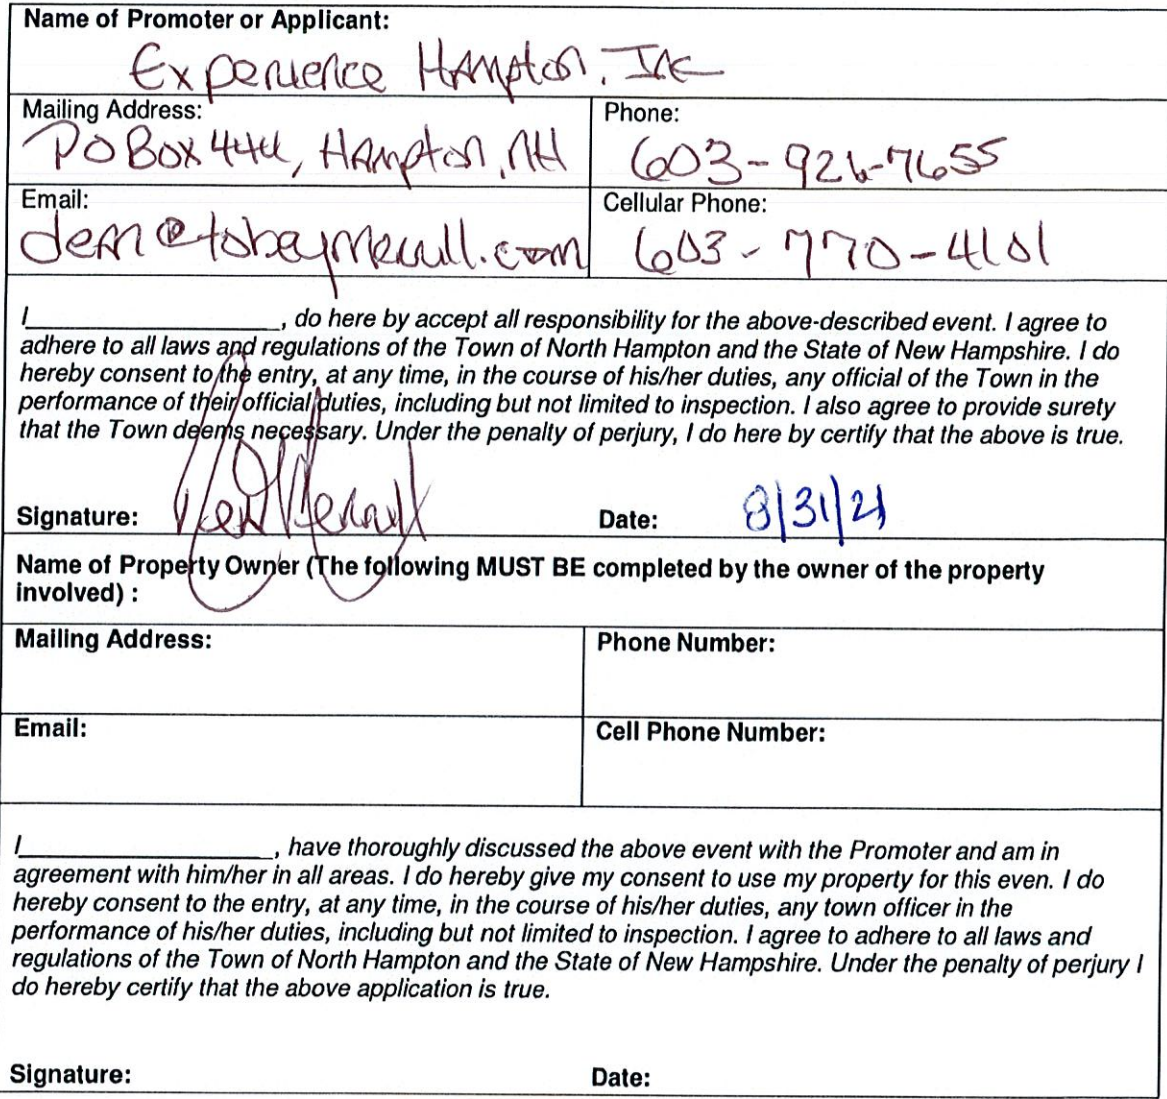 Name of Promoter or Applicant:
Experience Hampton, Inc
Mailing Address:
PO Box 444, Hampton, NH
Phone:
603-926-7655
Email:
dem@tobeymerrill.com
Cellular Phone:
603-770-4101
I____________________, do here by accept all responsibility for the above-described event. I agree to
adhere to all laws and regulations of the Town of North Hampton and the State of New Hampshire. I do
hereby consent to the entry, at any time, in the course of his/her duties, any official of the Town in the
performance of their official duties, including but not limited to inspection. I also agree to provide surety
that the Town deems necessary. Under the penalty of perjury, I do here by certify that the above is true.
Signature:
Date: 8/31/21
Name of Property Owner (The following MUST BE completed by the owner of the property
involved) :
Mailing Address:
Phone Number:
Email:
Cell Phone Number:
I____________________, have thoroughly discussed the above event with the Promoter and am in
agreement with him/her in all areas. I do hereby give my consent to use my property for this even. I do
hereby consent to the entry, at any time, in the course of his/her duties, any town officer in the
performance of his/her duties, including but not limited to inspection. I agree to adhere to all laws and
regulations of the Town of North Hampton and the State of New Hampshire. Under the penalty of perjury I
do hereby certify that the above application is true.
Signature:
Date: